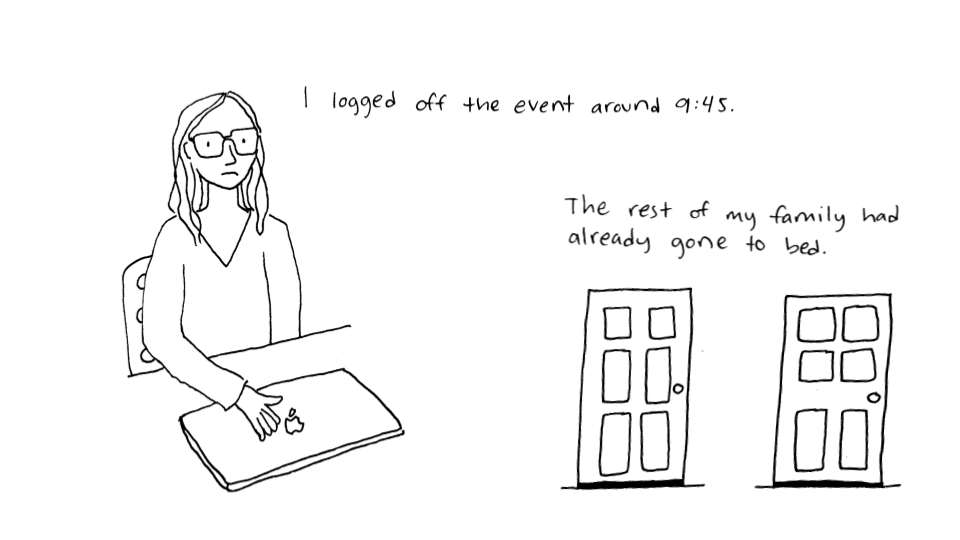 I logged off the event around 9:45.
The rest of my family had
already gone to bed.